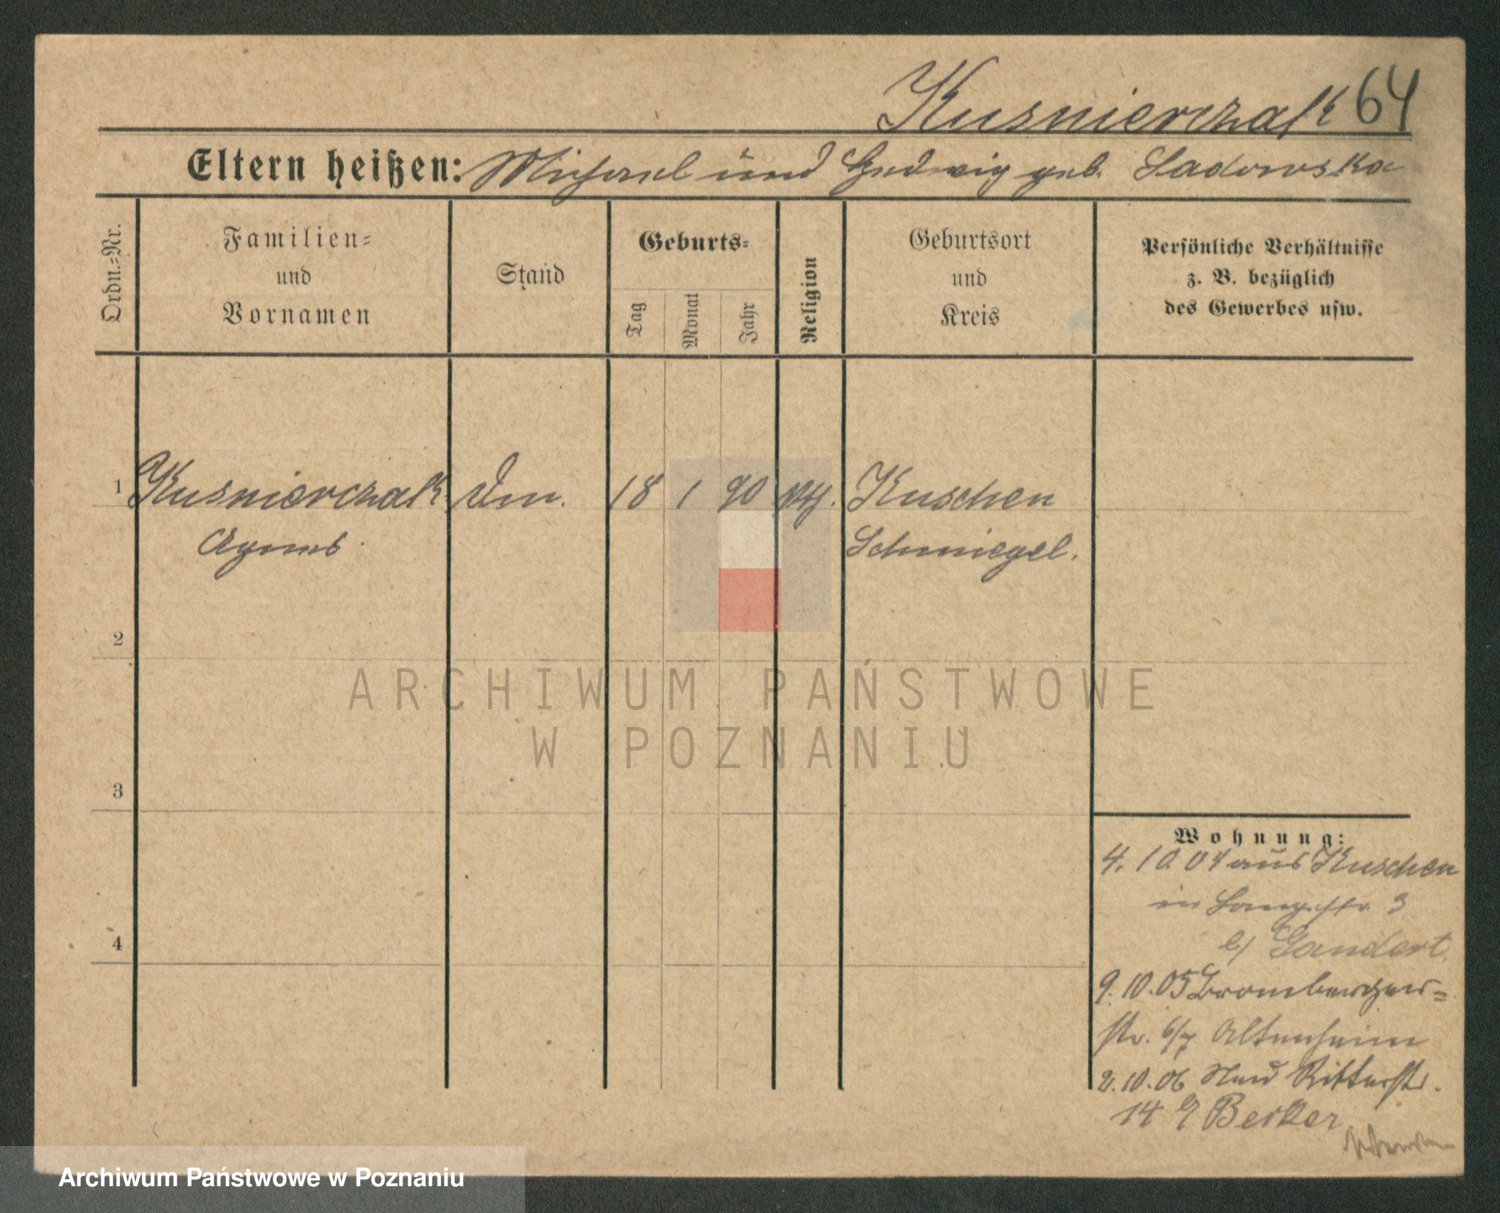 Kusnierczak 64
Eltern heißen: Michael und Hedwig geb. Sadowska
Ordn.-Nr.
Familien-
und
Vornamen
Stand
Geburts-
Tag
Monat
Jahr
Religion
Geburtsort
und
Kreis
Persönliche Verhältnisse
z. B. bezüglich
des Gewerbes usw.
1 Kusnierczak 18 1 90 Kuschen
Agnes Schmiegel.
2
3
4
Wohnung:
4. 10 04 aus Kuschen
in Langestr. 3
b/ Gandert
9. 10. 05 Bromberger-
str. 6/7 Altenheim
2. 10. 06 Neue Ritterstr.
14 Becker
ARCHIWUM PAŃSTWOWE
W POZNANIU
Archiwum Państwowe w Poznaniu